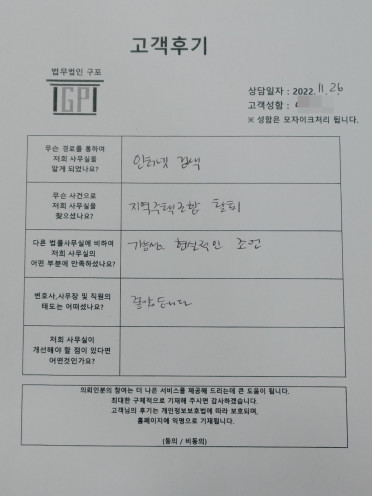 고객후기
법무법인 구포
GP
상담일자 : 2022. 11. 26
고객성함 :
※ 성함은 모자이크처리 됩니다.
무슨 경로를 통하여
저희 사무실을
알게 되었나요?
인터넷 검색
무슨 사건으로
저희 사무실을
찾으셨나요?
지역주택조합 탈퇴
다른 법률사무실에 비하여
저희 사무실의
어떤 부분에 만족하셨나요?
현실적인 조언
변호사,사무장 및 직원의
태도는 어떠셨나요?
좋았습니다
저희 사무실이
개선해야 할 점이 있다면
어떤것인가요?
의뢰인분의 참여는 더 나은 서비스를 제공해 드리는데 큰 도움이 됩니다.
최대한 구체적으로 기재해 주시면 감사하겠습니다.
고객님의 후기는 개인정보보호법에 따라 보호되며,
홈페이지에 익명으로 기재됩니다.
(동의 / 비동의)